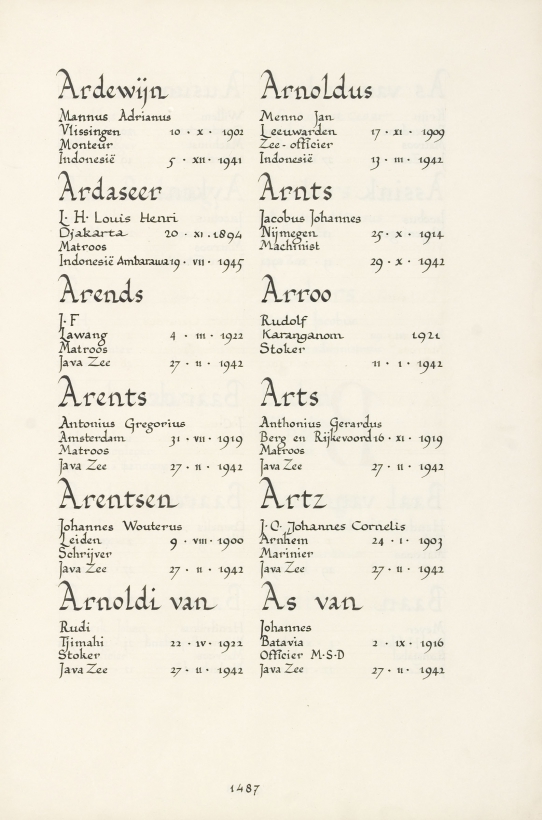 Ardewijn
Mannus Adrianus
Vlissingen 10 · X · 1902
Monteur
Indonesië 5 · XII · 1941
Ardaseer
L · H · Louis Henri
Djakarta 20 · XI · 1894
Matroos
Indonesië Ambarawa 19 · VII · 1945
Arends
J · F
Lawang 4 · III · 1922
Matroos
Java Zee 27 · II · 1942
Arents
Antonius Gregorius
Amsterdam 31 · VII · 1919
Matroos
Java Zee 27 · II · 1942
Arentsen
Johannes Wouterus
Leiden 9 · VIII · 1900
Schrijver
Java Zee 27 · II · 1942
Arnoldi van
Rudi
Tjimahi 22 · IV · 1922
Stoker
Java Zee 27 · II · 1942
Arnoldus
Menno Jan
Leeuwarden 17 · XI · 1909
Zee-officier
Indonesië 13 · III · 1942
Arnts
Jacobus Johannes
Nijmegen 25 · X · 1914
Machinist
29 · X · 1942
Arroo
Rudolf
Karanganom 1921
Stoker
11 · I · 1942
Arts
Anthonius Gerardus
Berg en Rijkevoord 16 · XI · 1919
Matroos
Java Zee 27 · II · 1942
Artz
J · O · Johannes Cornelis
Arnhem 24 · I · 1903
Marinier
Java Zee 27 · II · 1942
As van
Johannes
Batavia 2 · IX · 1916
Officier M·S·D
Java Zee 27 · II · 1942
1487